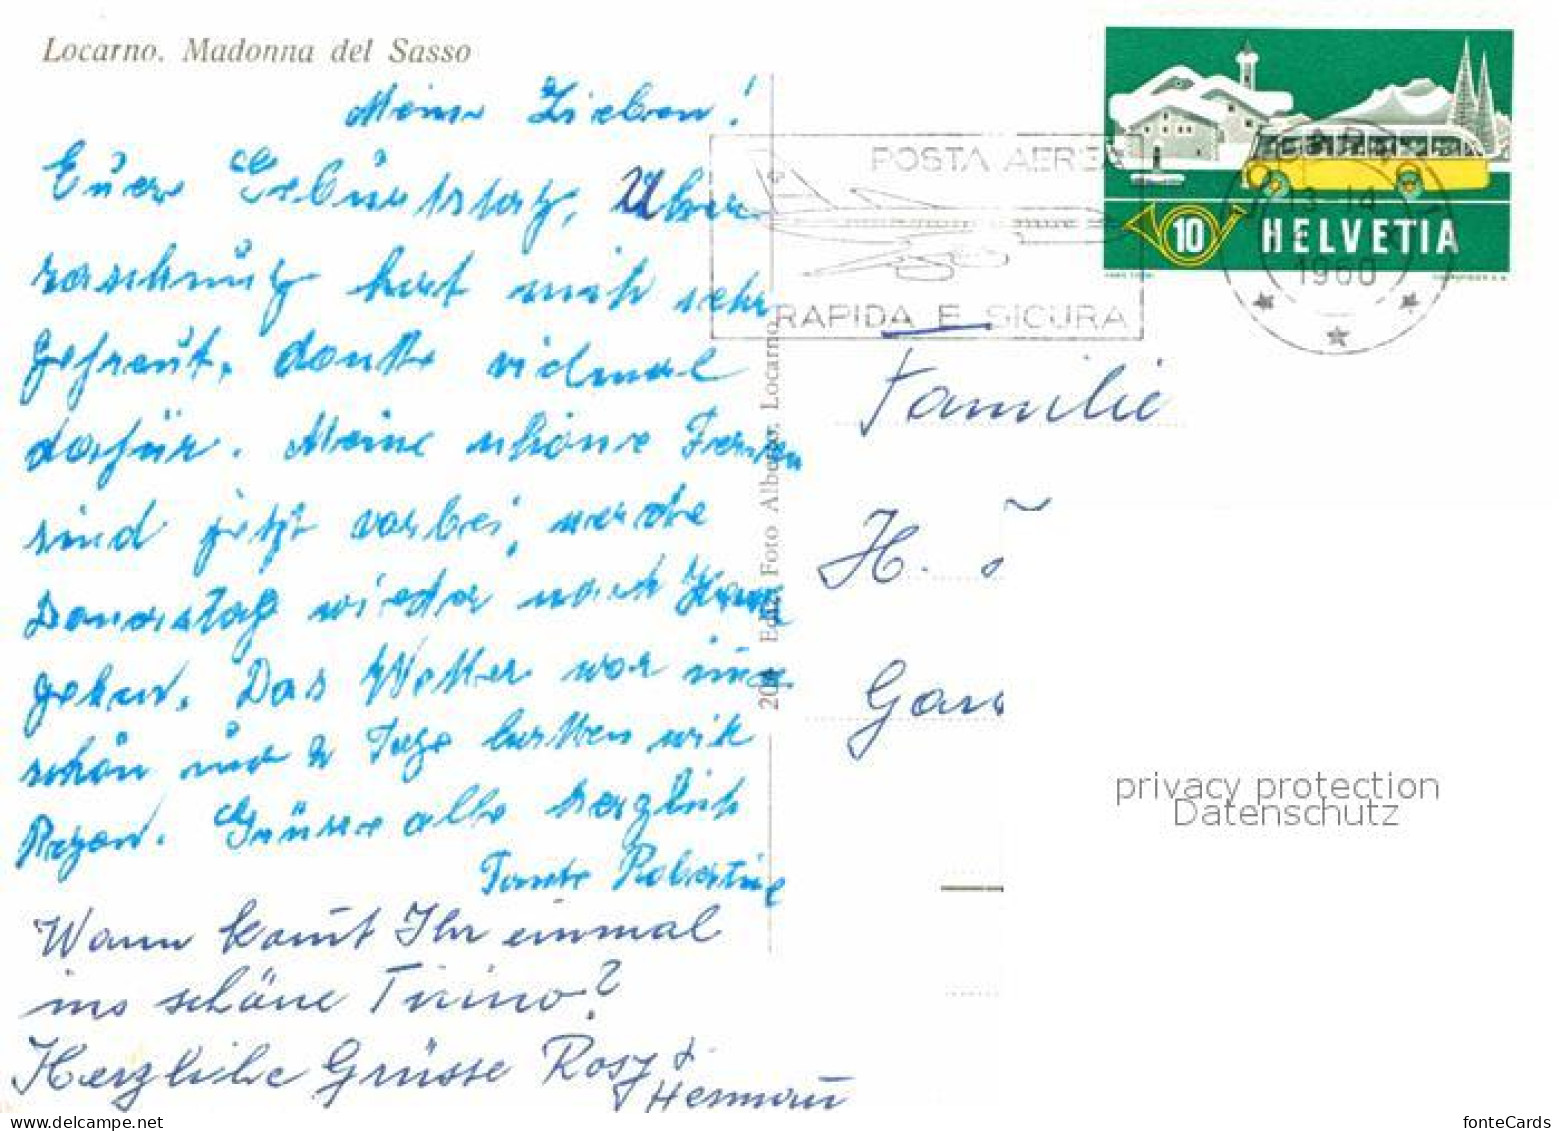 Locarno. Madonna del Sasso
Meine Lieben!
Eure Geburtstag, Über
raschung hat mich sehr
gefreut, danke vielmal
dafür. Meine schöne Ferien
sind jetzt vorbei, werde
Donerstag wieder nach Haus
gehen. Das Wetter war imer
schön nur 2 Tage hatten wir
Regen. Grüsse alle herzlich
Tante Robertine
Wann komt Ihr einmal
ins schöne Ticino?
Herzliche Grüsse Rosy &
Hermann
POSTA AEREA
RAPIDA E SICURA
10 HELVETIA
13-14
1960
Foto Alberto, Locarno
Familie
H.
privacy protection
Datenschutz
www.delcampe.net
fonteCards